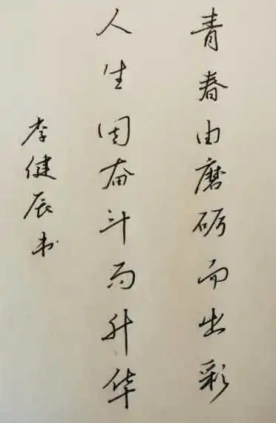 青春由磨砺而出彩
人生因奋斗而升华
李健辰书